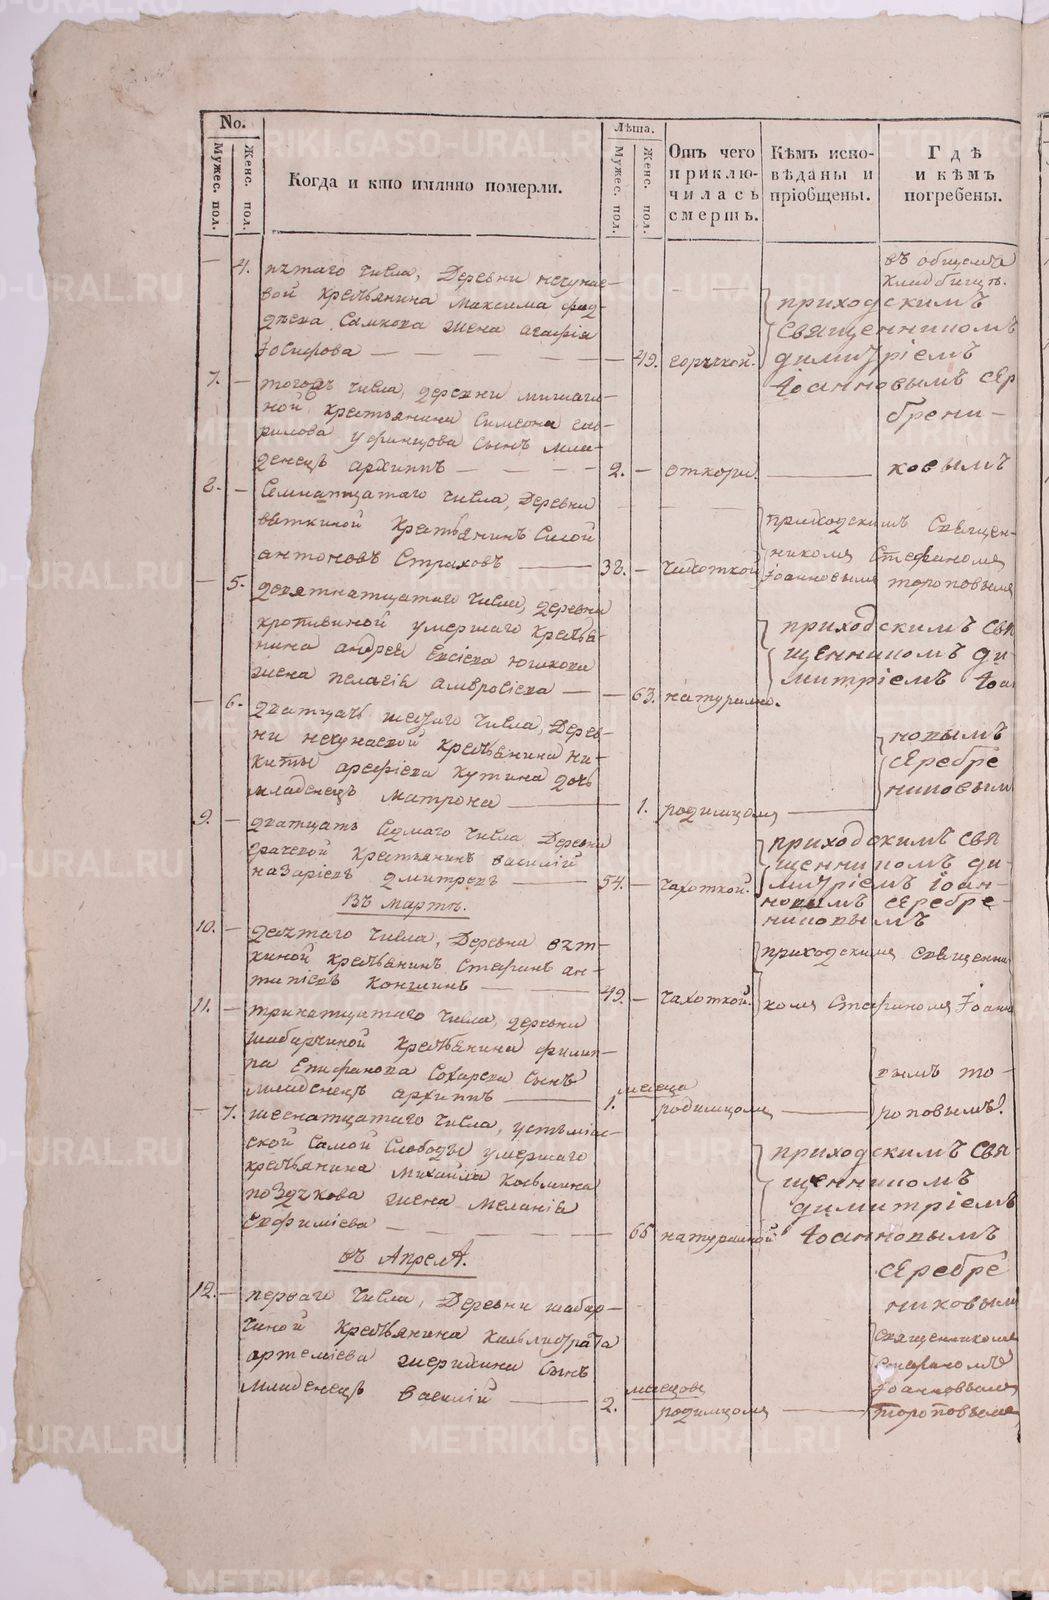 No.
Мужес. пол.
Женс. пол.
Когда и кто имянно померли.
Лѣта.
Мужес. пол.
Женс. пол.
Отъ чего
приклю-
чилась
смерть.
Кѣмъ испо-
вѣданы и
пріобщены.
Гдѣ
и кѣмъ
погребены.
4. пятаго числа, деревни нечунае-
вой крестьянина максима
жена агафія
Іосифова 49. горячкой.
въ общемъ
кладбищѣ.
приходскимъ
священникомъ
димитріемъ
Іоанновымъ сер
брени-
ковымъ
7. тогожъ числа, деревни
ной крестьянина симеона гав-
рилова уфинцова сынъ мла-
денецъ архиппъ 2. от кори.
8. Семнатцатаго числа, деревни
вяткиной крестьянинъ Силой
антоновъ Страховъ 38. чахоткой
приходскимъ священ-
никомъ Стефаномъ
Іоанновымъ тороповымъ
5. девятнатцатаго числа, деревни
кропивиной умершаго крестья-
нина андрея Евсіева югикова
жена пелагія амвросіева 63. натурално.
приходскимъ свя
щенникомъ ди-
митріемъ Іоан
новымъ
серебре
никовым
6. дватцать шестаго числа, дерев-
ни нечунаевой крестьянина ни-
киты арефіева кутина дочь
младенецъ матрона 1. родимцомъ
9. дватцать седмаго числа деревни
крестьянинъ василій
назаріевъ дмитревъ 54. чахоткой.
приходскимъ свя
щенникомъ ди-
митріемъ іоан-
новымъ серебре-
никовымъ
Въ мартѣ.
10. десятаго числа, деревни вят-
киной крестьянинъ Стефанъ ан-
типіевъ коншинъ 49. чахоткой.
приходскимъ священни
комъ Стефаномъ Іоанно
вымъ то-
роповымъ.
11. тринатцатаго числа, деревни
шабарчиной крестьянина филип-
па Епифанова Сохарева сынъ
младенецъ архиппъ 1. месеца родимцомъ
7. шеснатцатаго числа, устьміас-
ской самой слободы умершаго
крестьянина михайла Козьмина
поздякова жена меланія
Евфиміева 65 натуралной
приходскимъ свя-
щенникомъ
димитріемъ
Іоанновымъ
серебре
никовым
въ Апрелѣ.
12. перваго числа, деревни шабар-
чиной крестьянина калистрата
артеміева сынъ
младенецъ василій 2. месецовъ родимцомъ
священникомъ
стефаномъ
Іоанновымъ
тороповымъ
METRIKI.GASO-URAL.RU